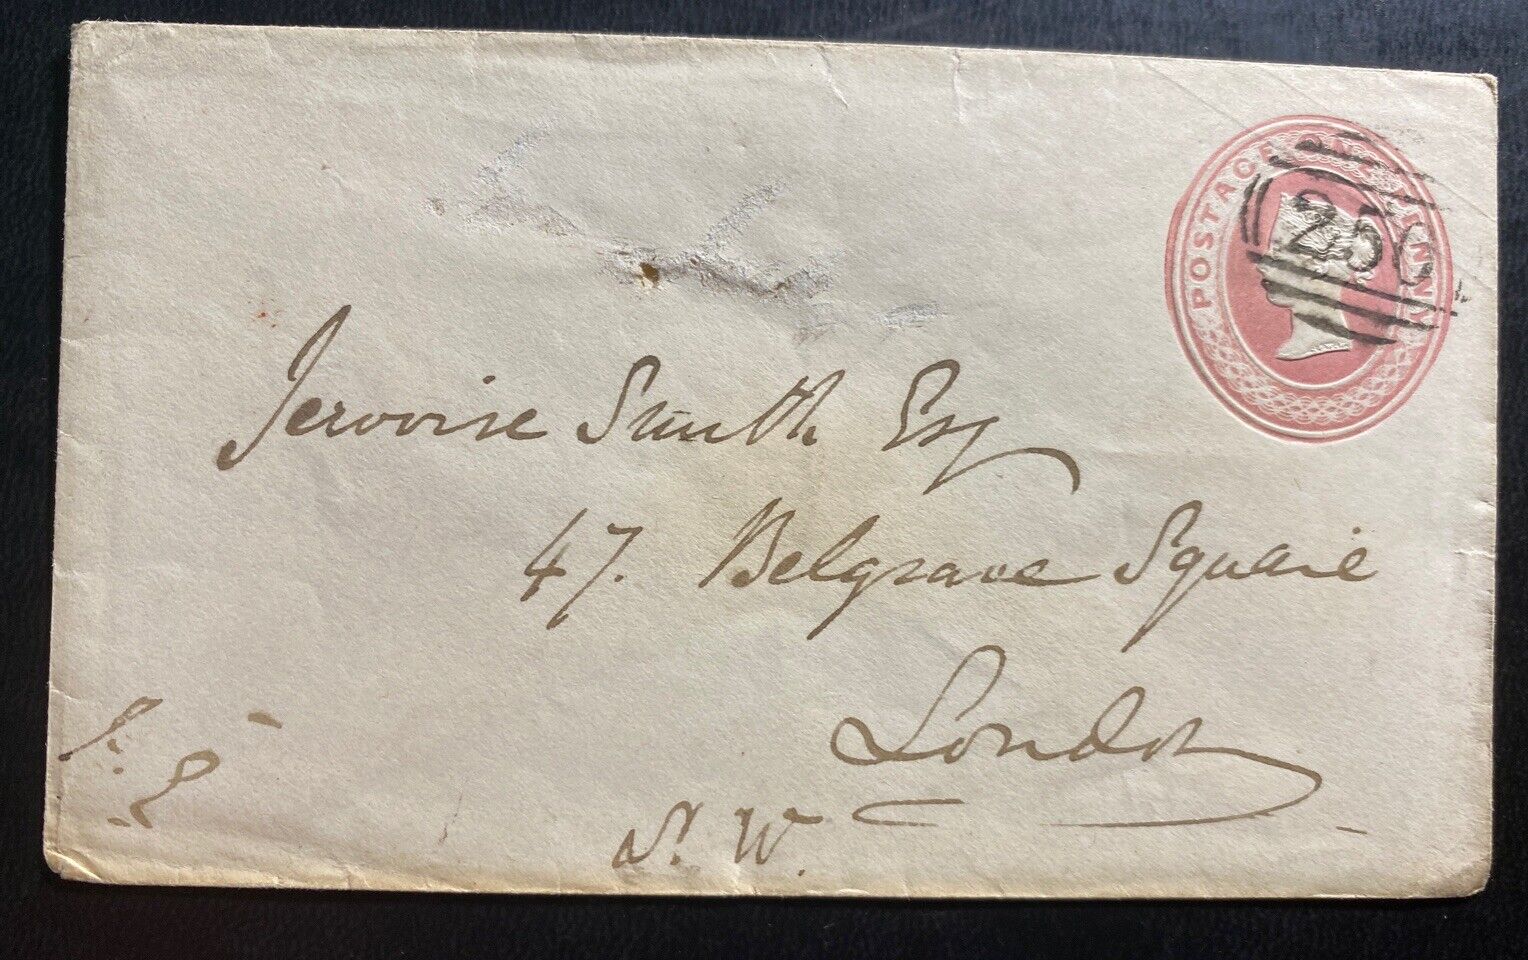 POSTAGE ONE PENNY
250
Jervoise Smith Esq
47. Belgrave Square
London
S. W.